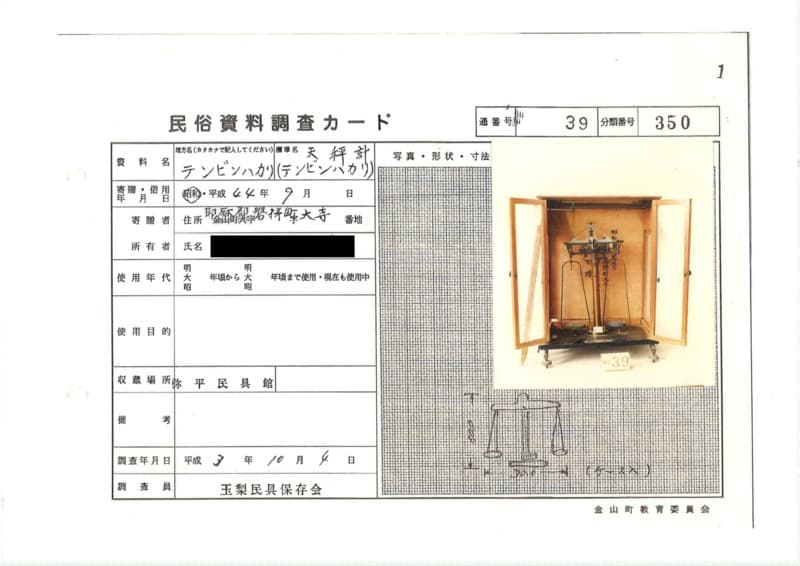 1
民俗資料調査カード
通番号 39 分類番号 350
資料名 地方名(カタカナで記入してください) テンビンハカリ 標準名 天秤計 (テンビンハカリ)
写真・形状・寸法
寄贈・借用年月日 昭和・平成 44年 9月 日
寄贈者 住所 金山町大字 耶麻郡磐梯町大寺 字 番地
所有者 氏名
使用年代 明大昭 年頃から 明大昭 年頃まで使用・現在も使用中
39
使用目的
収蔵場所 弥平民具館
備考
30.0
(ケース入)
調査年月日 平成 3年 10月 4日
調査員 玉梨民具保存会
金山町教育委員会